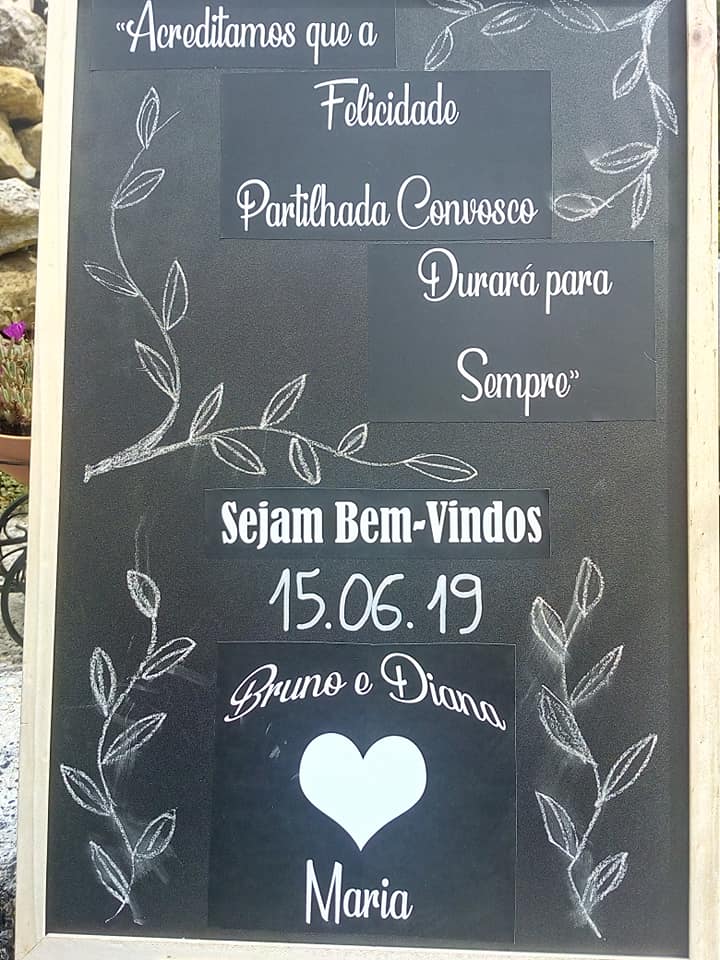 “Acreditamos que a
Felicidade
Partilhada Convosco
Durará para
Sempre”
Sejam Bem-Vindos
15.06.19
Bruno e Diana
Maria